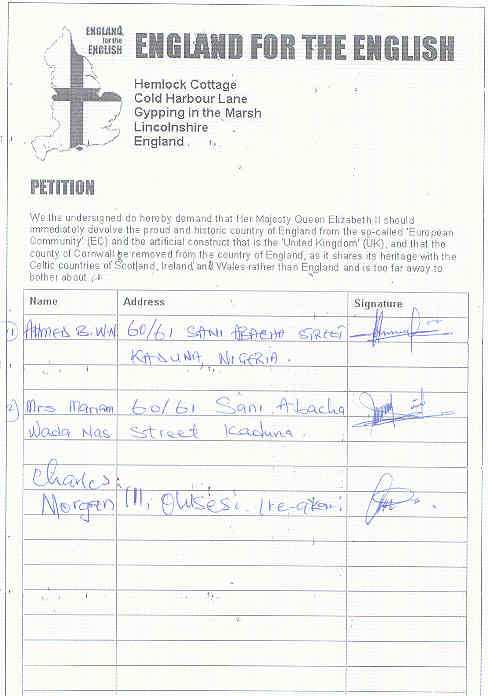 ENGLAND
for the
ENGLISH
ENGLAND FOR THE ENGLISH
Hemlock Cottage
Cold Harbour Lane
Gypping in the Marsh
Lincolnshire
England
PETITION
We the undersigned do hereby demand that Her Majesty Queen Elizabeth II should
immediately devolve the proud and historic country of England from the so-called 'European
Community' (EC) and the artificial construct that is the 'United Kingdom' (UK), and that the
county of Cornwall be removed from the country of England, as it shares its heritage with the
Celtic countries of Scotland, Ireland and Wales rather than England and is too far away to
bother about.
Name Address Signature
1) AHMED B. W.N 60/61 SANI ABACHA STREET
KADUNA, NIGERIA.
2) Mrs Mariam 60/61 Sani Abacha
Wada Nas Street Kaduna.
Charles
Morgan